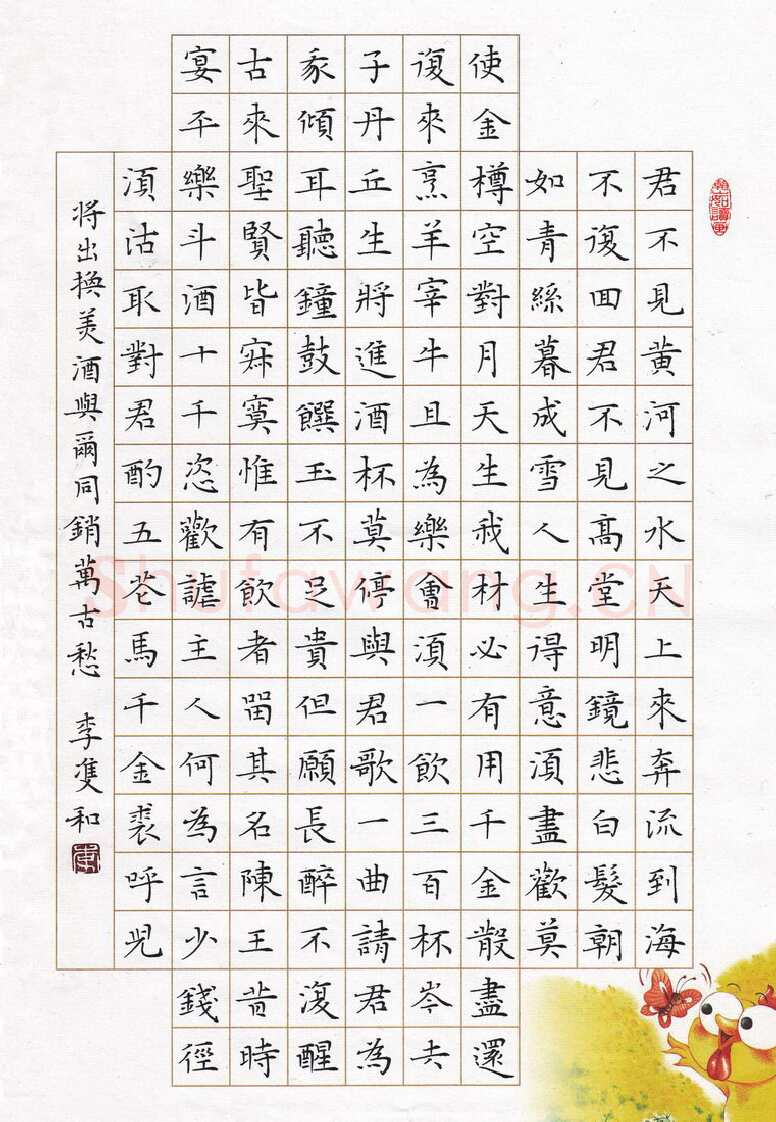 君不見黃河之水天上來奔流到海
不復回君不見高堂明鏡悲白髮朝
如青絲暮成雪人生得意須盡歡莫
使金樽空對月天生我材必有用千金散盡還
復來烹羊宰牛且為樂會須一飲三百杯岑夫
子丹丘生將進酒杯莫停與君歌一曲請君為
我傾耳聽鐘鼓饌玉不足貴但願長醉不復醒
古來聖賢皆寂寞惟有飲者留其名陳王昔時
宴平樂斗酒十千恣歡謔主人何為言少錢徑
須沽取對君酌五花馬千金裘呼兒
將出換美酒與爾同銷萬古愁 李雙和
Shufawang.CN